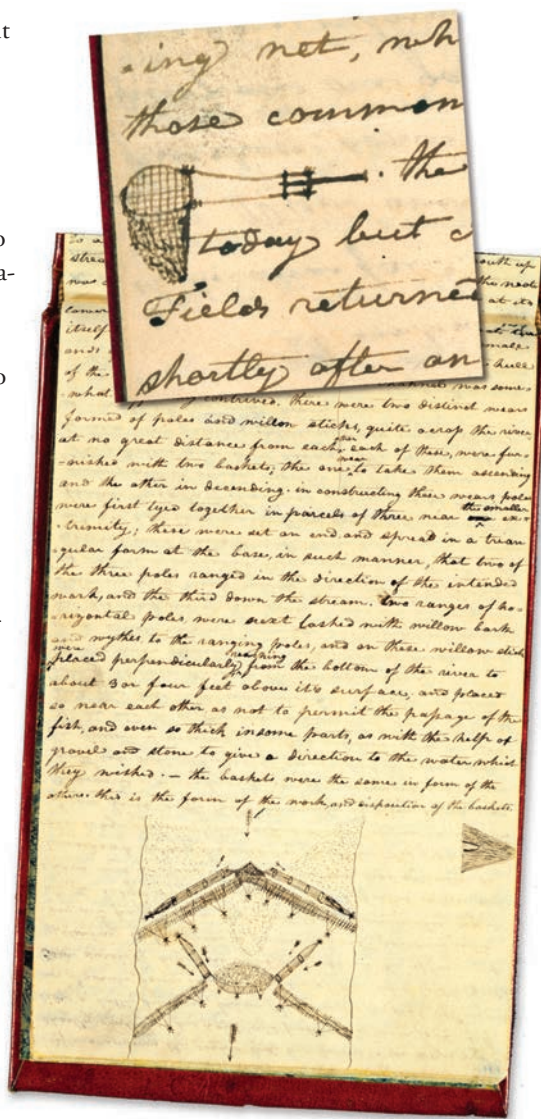 it
o
a-
o
-ing net, wh
those common
. the
today but c
Fields returned
shortly after an
to a
stream
was
conve
itself
and
of the
-what contrived. there were two distinct wears
formed of poles and willow sticks, quite across the river
at no great distance from each other. each of these, were fur-
-nished with two baskets; the one wear to take them ascending
and the other in decending. in constructing these wears poles
were first tyed together in parcels of three near the smaller ex-
-tremity; these were set on end, and spread in a trian
-gular form at the base, in such manner, that two of
the three poles ranged in the direction of the intended
work, and the third down the stream. two ranges of ho-
-rizontal poles, were next lashed with willow bark
and wythes to the ranging poles, and on these willow sticks
were placed perpendicularly, reaching from the bottom of the river to
about 3 or four feet above it's surface; and placed
so near each other as not to permit the passage of the
fish, and even so thick in some parts, as with the help of
gravel and stone to give a direction to the water which
they wished. — the baskets were the same in form of the
others. this is the form of the work, and disposition of the baskets.